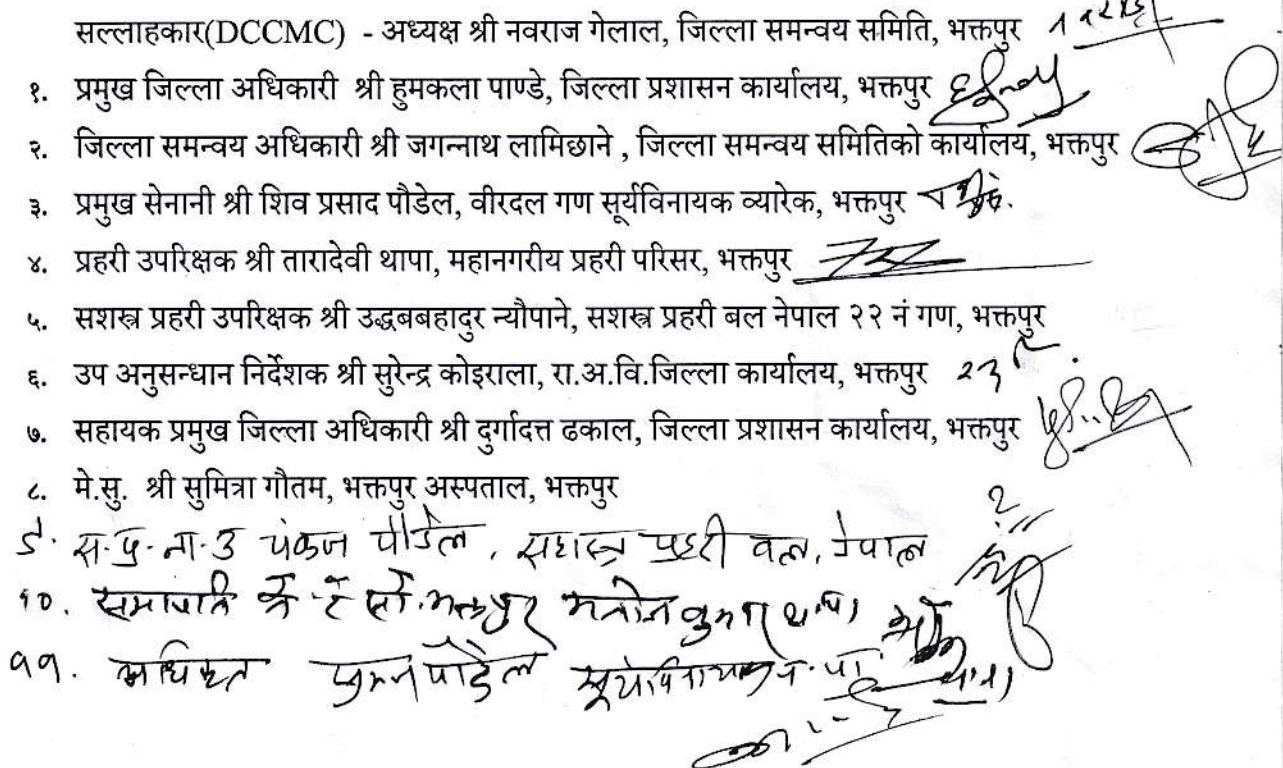 सल्लाहकार(DCCMC) - अध्यक्ष श्री नवराज गेलाल, जिल्ला समन्वय समिति, भक्तपुर
१. प्रमुख जिल्ला अधिकारी श्री हुमकला पाण्डे, जिल्ला प्रशासन कार्यालय, भक्तपुर
२. जिल्ला समन्वय अधिकारी श्री जगन्नाथ लामिछाने , जिल्ला समन्वय समितिको कार्यालय, भक्तपुर
३. प्रमुख सेनानी श्री शिव प्रसाद पौडेल, वीरदल गण सूर्यविनायक व्यारेक, भक्तपुर
४. प्रहरी उपरिक्षक श्री तारादेवी थापा, महानगरीय प्रहरी परिसर, भक्तपुर
५. सशस्त्र प्रहरी उपरिक्षक श्री उद्धबबहादुर न्यौपाने, सशस्त्र प्रहरी बल नेपाल २२ नं गण, भक्तपुर
६. उप अनुसन्धान निर्देशक श्री सुरेन्द्र कोइराला, रा.अ.वि.जिल्ला कार्यालय, भक्तपुर
७. सहायक प्रमुख जिल्ला अधिकारी श्री दुर्गादत्त ढकाल, जिल्ला प्रशासन कार्यालय, भक्तपुर
८. मे.सु. श्री सुमित्रा गौतम, भक्तपुर अस्पताल, भक्तपुर
९. स.प्र.ना.उ पंकज पौडेल, सशस्त्र प्रहरी बल, नेपाल
१०. सभापति ने.रे.सो. भक्तपुर
११. अधिकृत पौडेल